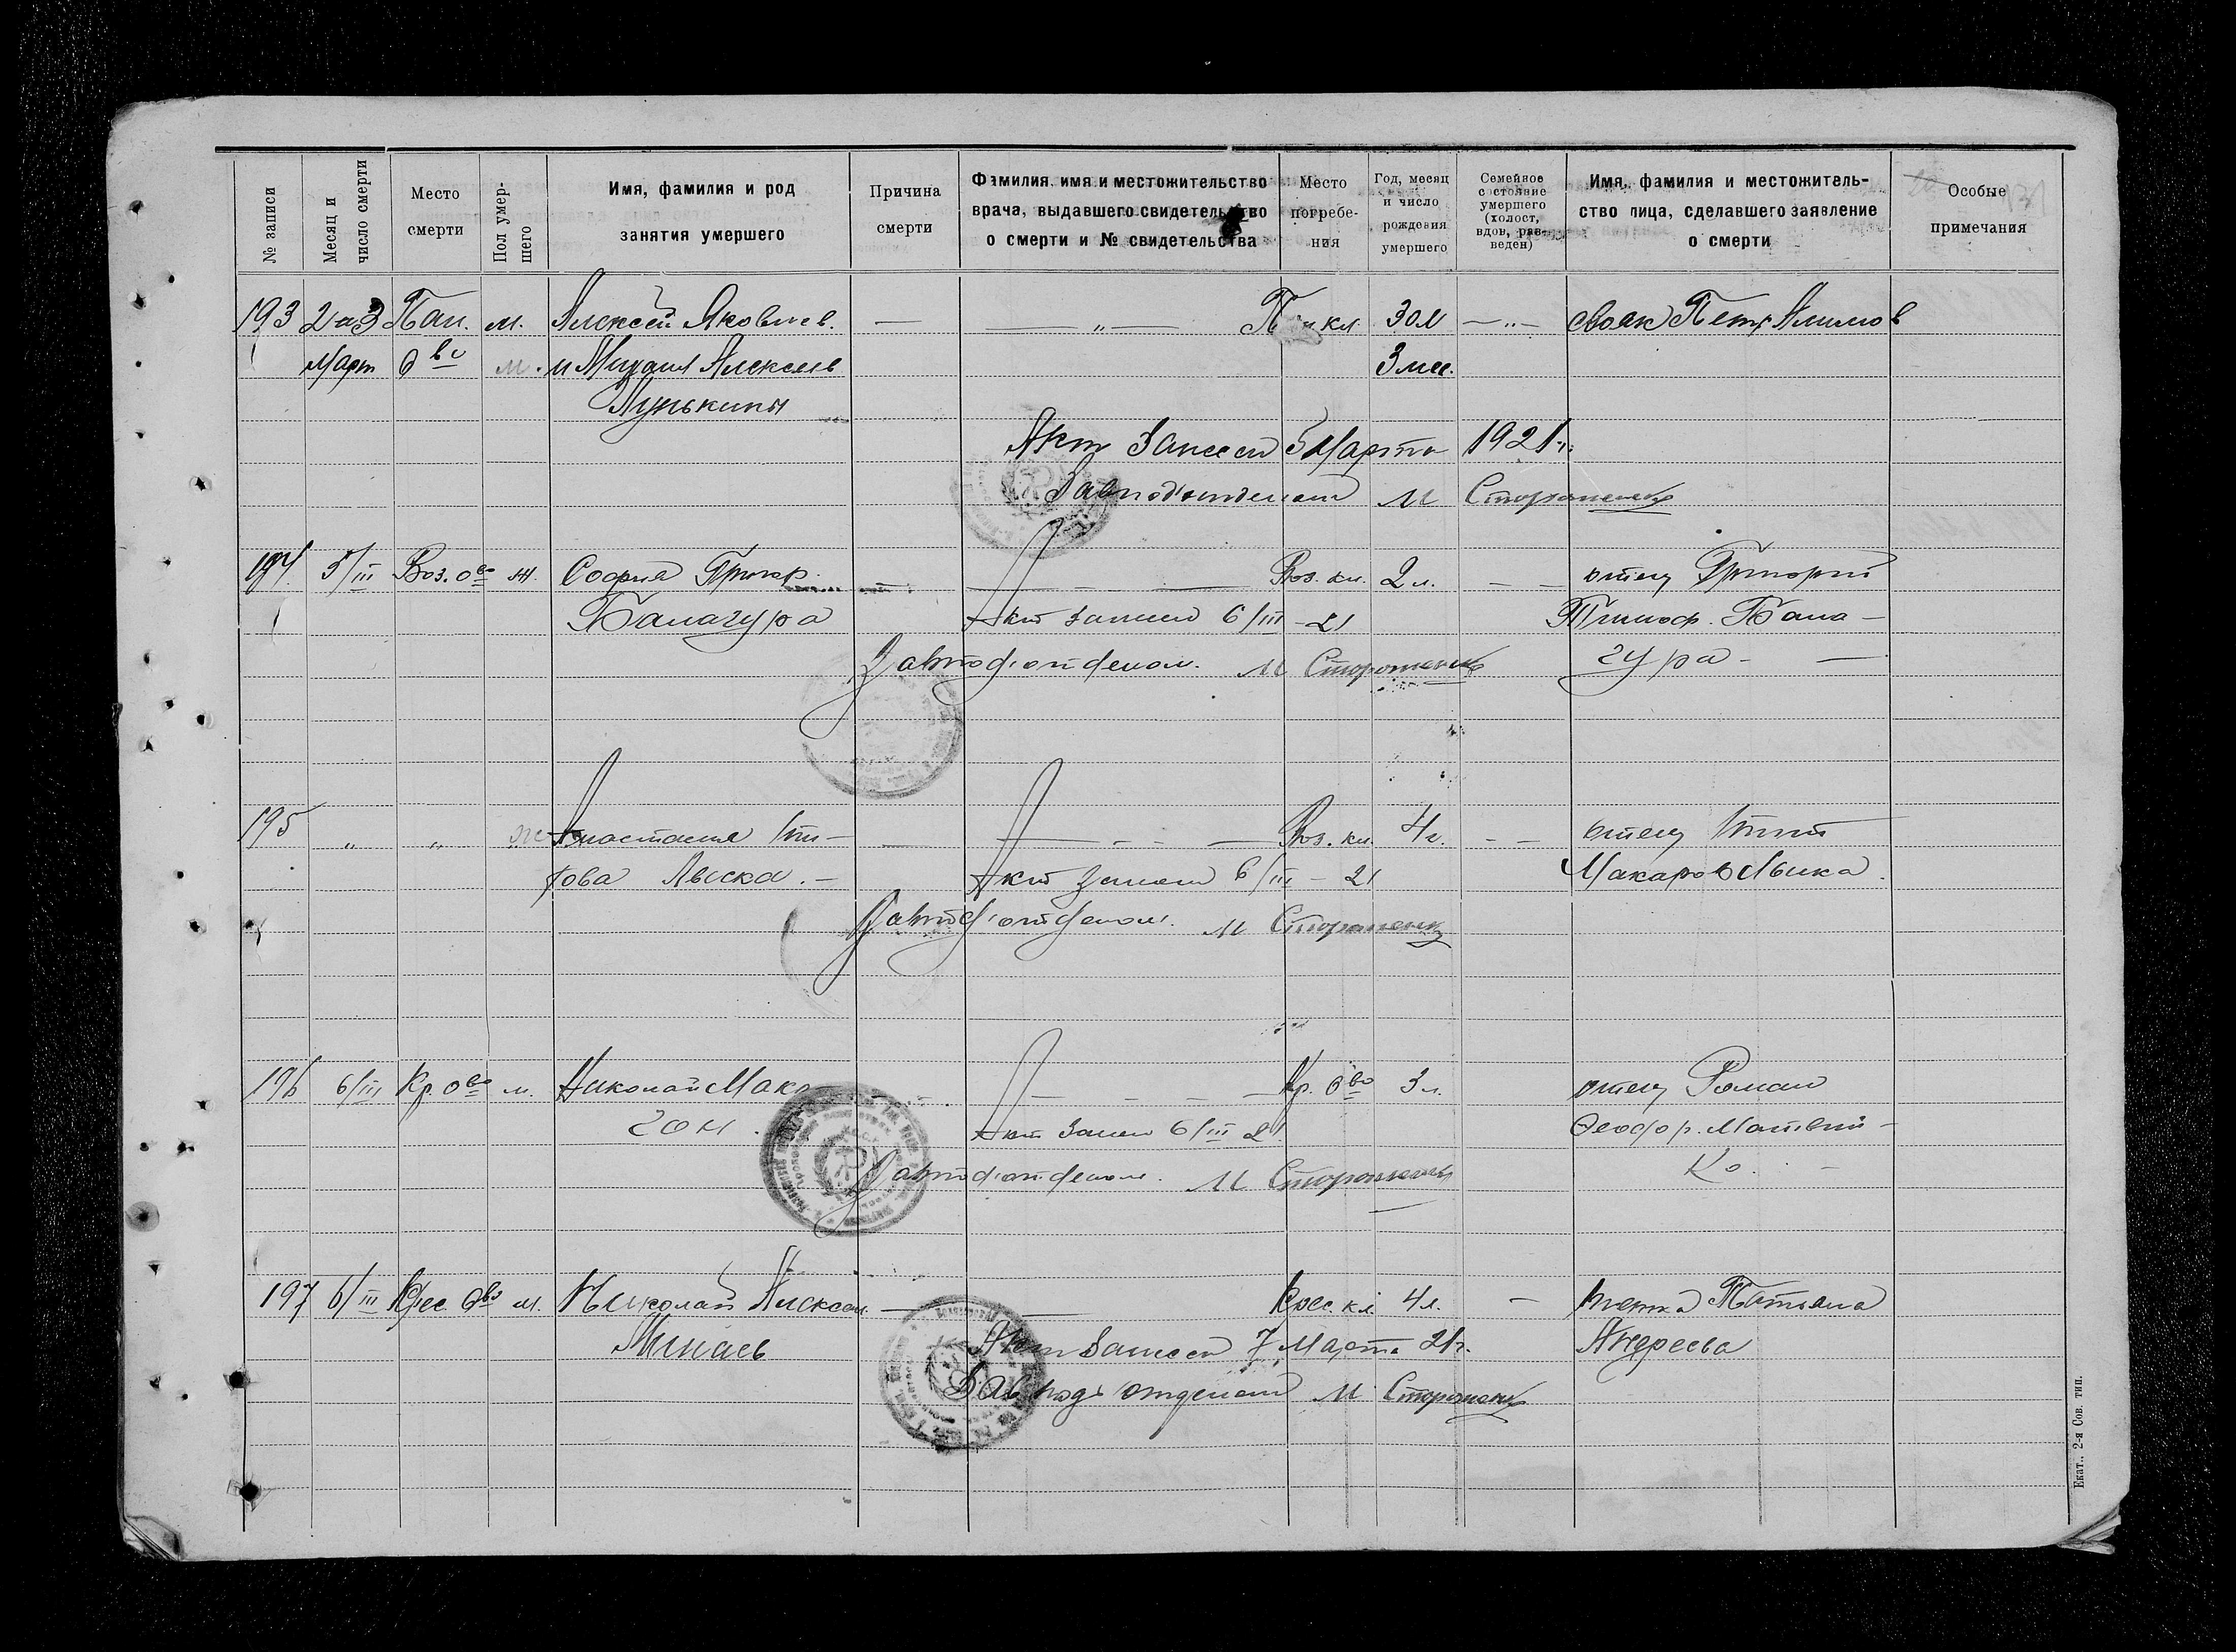 № записи
Месяц и число смерти
Место смерти
Пол умершего
Имя, фамилия и род занятия умершего
Причина смерти
Фамилия, имя и местожительство врача, выдавшего свидетельство о смерти и № свидетельства
Место погребения
Год, месяц и число рождения умершего
Семейное состояние умершего (холост, вдов, разведен)
Имя, фамилия и местожительство лица, сделавшего заявление о смерти
Особые примечания
193 2 и 3 Пан. м. Алексей Яковлев. — — „ — кл. 30 л — „ — свояк Петр Алимов
Март о-во м. и Михаил Алексеев 3 мес.
Лунькины
Акт занесен 5 Марта 1921 г.
Завподотделом М Стороженко
194 5/III Воз. о-во ж. София Григор. — — Воз. кл. 2 л. — — отец Григорий
Балагура Акт занесен 6/III – 21 Тимоф. Бала–
Завподотделом. М Стороженко гура —
195 „ „ ж Анастасия Ти– — — Воз. кл. 4 г. — — отец Тит
това Лыска. — Акт занесен 6/III – 21 Макаров Лыска.
Завподотделом. М Стороженко
196 6/III Кр. о-во м. Николай Мако– — — Кр. о-во 3 л. отец Роман
гон. Акт занесен 6/III 21 Феодор. Матвий–
Завподотделом. М Стороженко ко. —
197 6/III о-во м. Николай Алексеев. — — кл. 4 л. — тетка Татьяна
Минаев Акт занесен 7 Марта 21 г. Андреева
Завподотделом М Стороженко
Екат., 2-я Сов. тип.